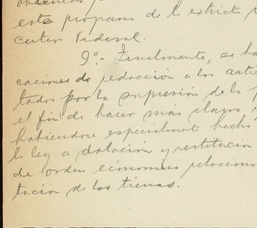 este program de l estricto
cutivo Federal.
9º.- Finalmente, se ha
caciones de redacción a los artí
tados por la supresión de la
el fin de hacer más claros
habiéndose especialmente hecho
la ley a dotación y restitución
de orden económico relacion
tación de las tierras.